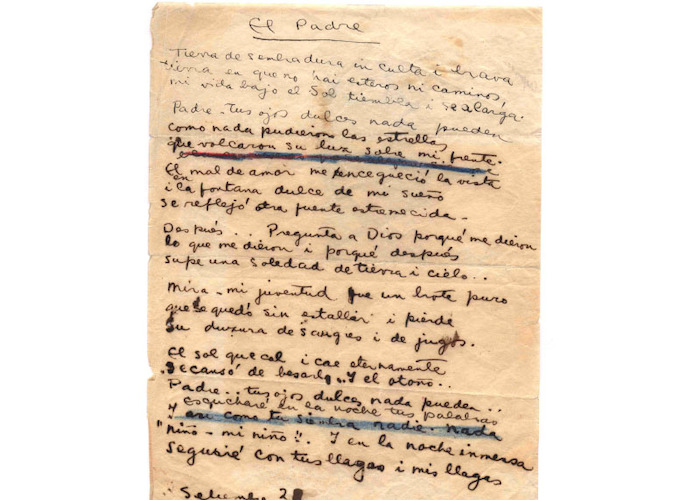 El Padre
Tierra de sembradura inculta i brava
tierra en que no hai esteros ni caminos,
mi vida bajo el Sol tiembla i se alarga.
Padre - tus ojos dulces nada pueden
como nada pudieron las estrellas
que volcaron su luz sobre mi frente.
El mal de amor me encegueció la vista
i en la fontana dulce de mi sueño
se reflejó otra fuente estremecida -
Después... Pregunta a Dios porqué me dieron
lo que me dieron i porqué después
supe una soledad de tierra i cielo..
Mira - mi juventud fue un brote puro
que se quedó sin estallar i pierde
su dulzura de sangres i de jugos.
El sol que cae i cae eternamente
se cansó de besarla.. Y el otoño..
Padre.. tus ojos dulces nada pueden..
Escucharé en la noche tus palabras
"niño - mi niño".. Y en la noche inmensa
seguiré con tus llagas i mis llagas
Setiembre 2